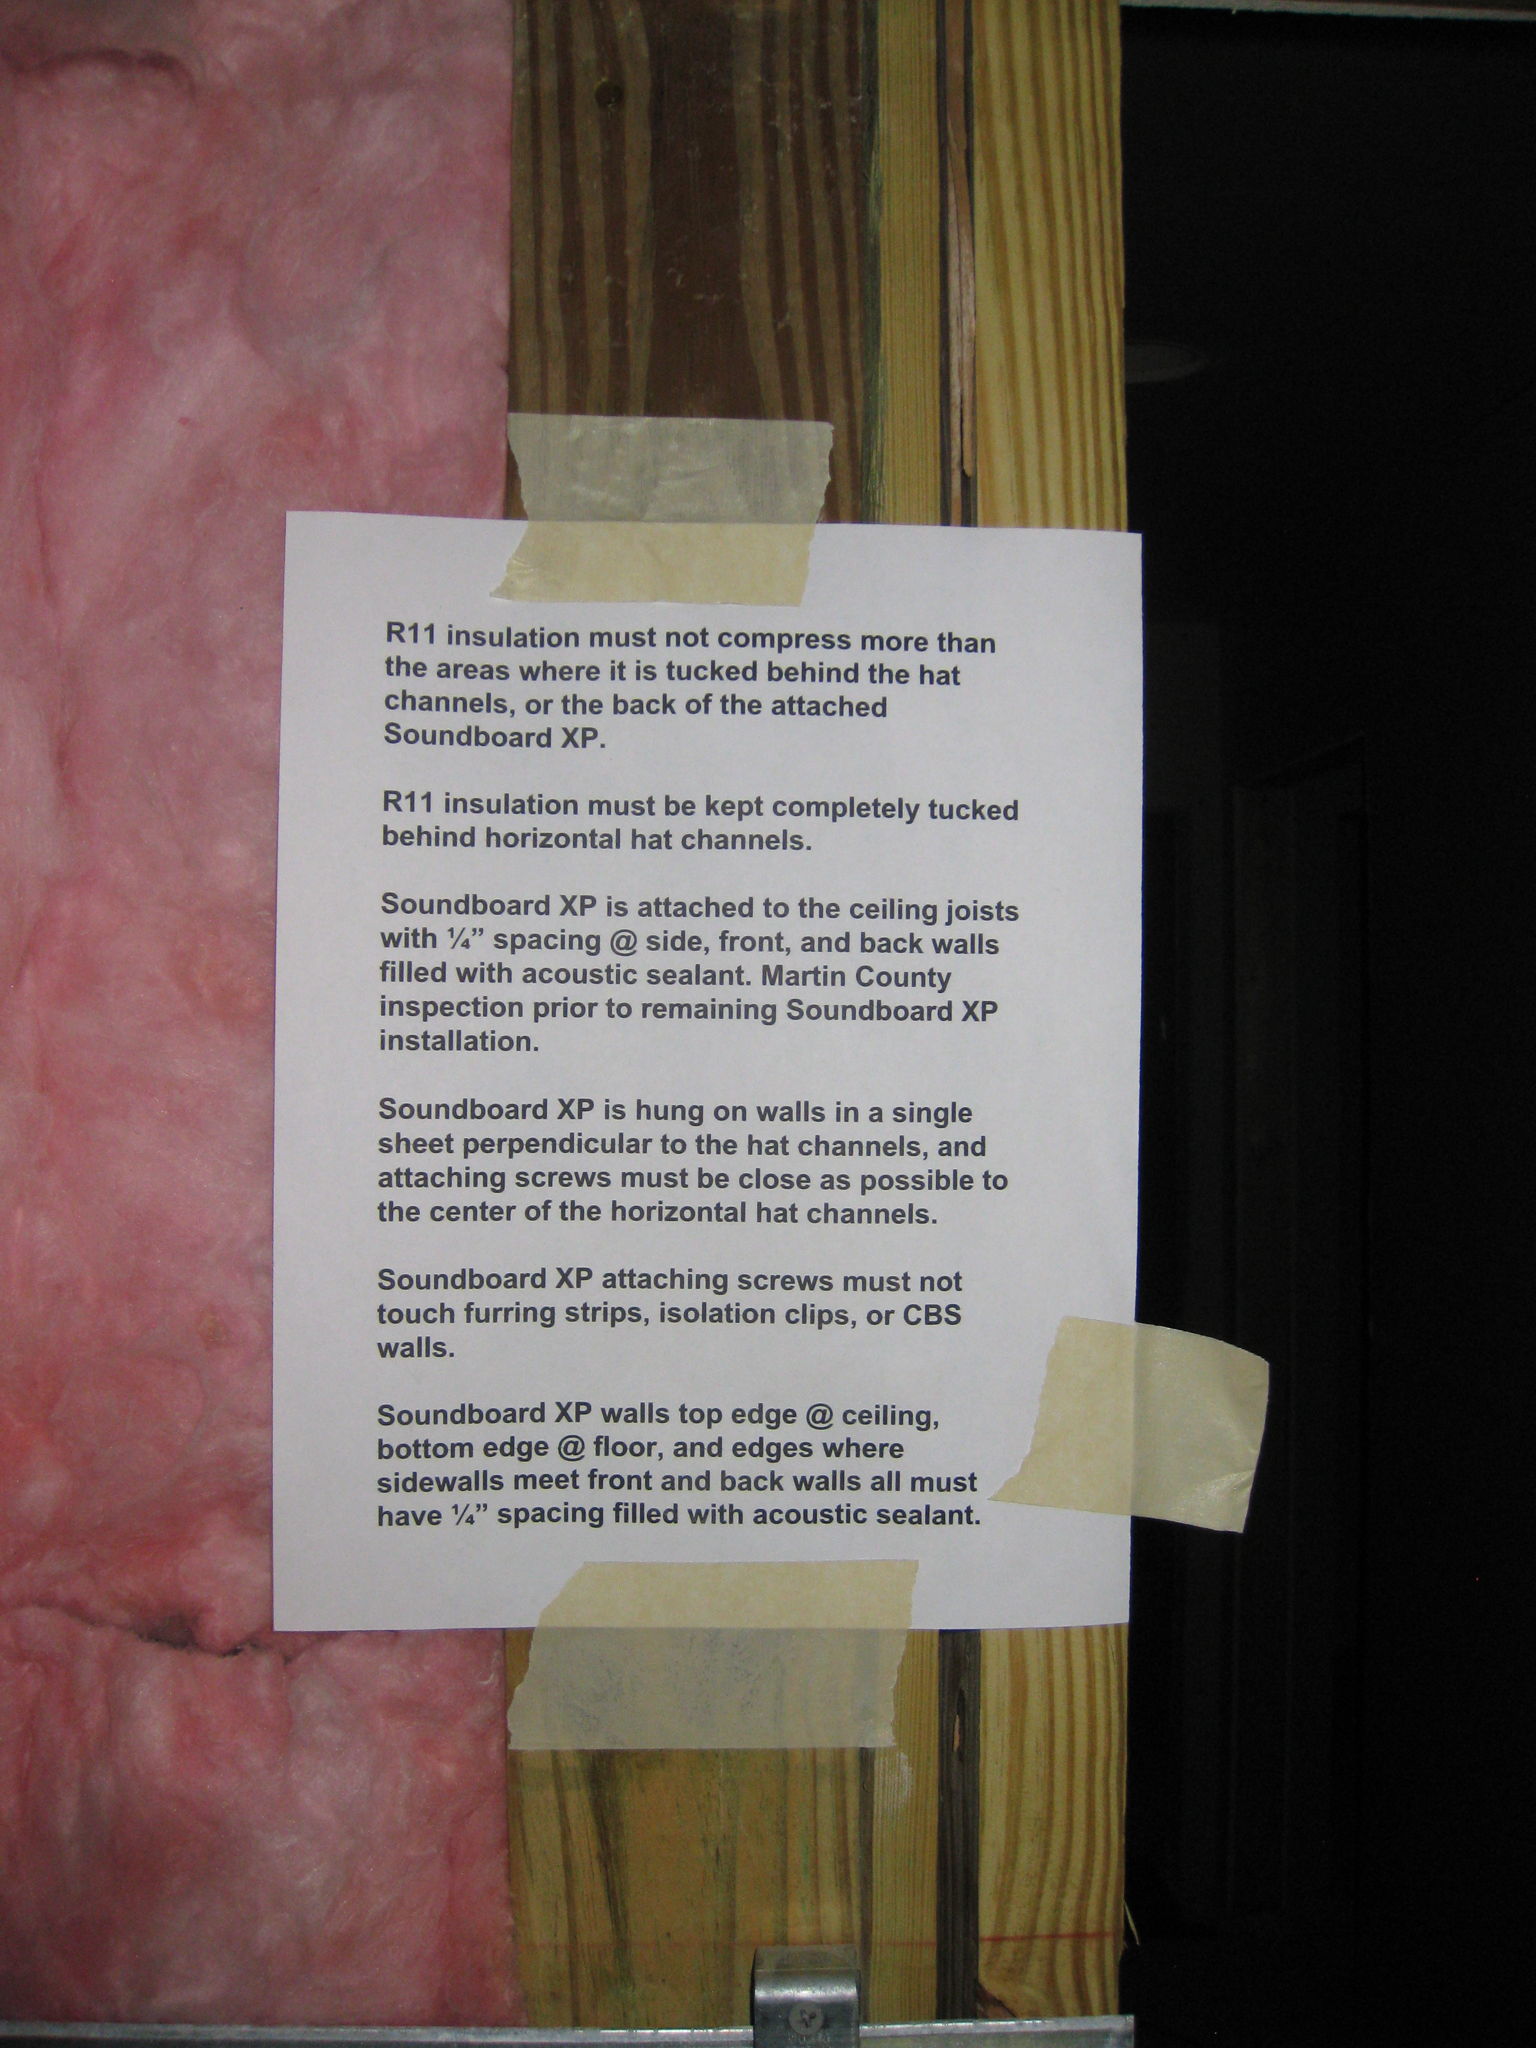 R11 insulation must not compress more than
the areas where it is tucked behind the hat
channels, or the back of the attached
Soundboard XP.
R11 insulation must be kept completely tucked
behind horizontal hat channels.
Soundboard XP is attached to the ceiling joists
with ¼” spacing @ side, front, and back walls
filled with acoustic sealant. Martin County
inspection prior to remaining Soundboard XP
installation.
Soundboard XP is hung on walls in a single
sheet perpendicular to the hat channels, and
attaching screws must be close as possible to
the center of the horizontal hat channels.
Soundboard XP attaching screws must not
touch furring strips, isolation clips, or CBS
walls.
Soundboard XP walls top edge @ ceiling,
bottom edge @ floor, and edges where
sidewalls meet front and back walls all must
have ¼” spacing filled with acoustic sealant.